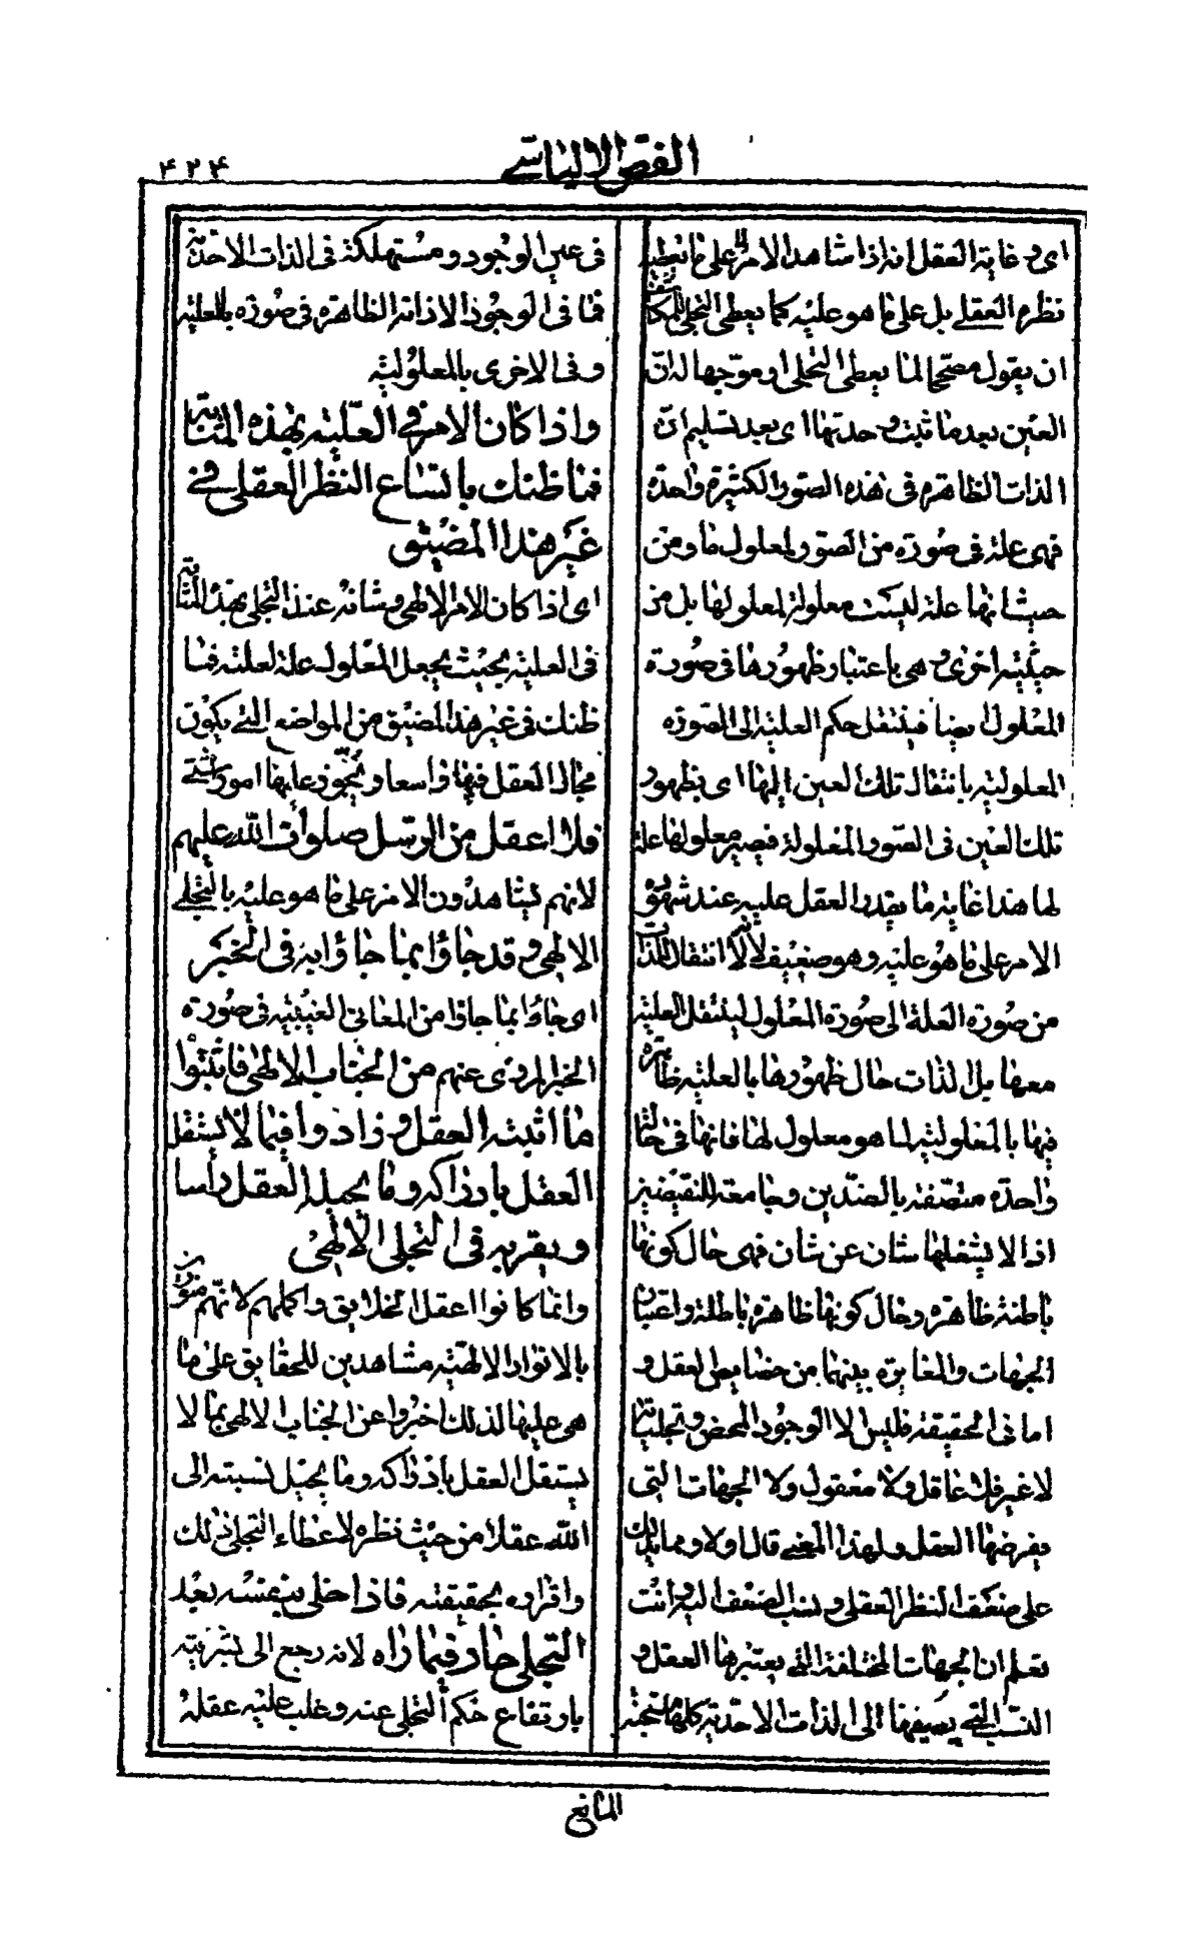 الفص الالياسے
۴۲۴
اى و غاية العقل انه اذا شاهد الامر على ما يعطيه
نظره العقلے بل على ما هو عليه كما يعطى التجلى للمكاشف
ان يقول مصححا لما يعطى التجلى او موجها له انّ
العين بعد ما ثبت وحدتها اى بعد تسليم انّ
الذات الظاهرة فى هذه الصور الكثيرة واحدة
فهى علة فى صورة من الصور لمعلول ما و من
حيث انها علة ليست معلولة لمعلولها بل من
حيثية اخرى و هى باعتبار ظهورها فى صورة
المعلول ايضا فينتقل حكم العلية الى الصورة
المعلولية بانتقال تلك العين اليها اى بظهور
تلك العين فى الصور المعلولة فيصير معلولها علة
لها هذا غاية ما يقدر العقل عليه عند شهوده
الامر على ما هو عليه و هو ضعيف لانه لا انتقال للذات
من صورة العلة الى صورة المعلول لينتقل العلية
معها بل الذات حال ظهورها بالعلية ظاهرة
فيها بالمعلولية لما هو معلول لها فانها فى حالة
واحدة متصفة بالضدين و جامعة للنقيضين
اذ لا يشغلها شان عن شان فهى حال كونها
باطنة ظاهرة و حال كونها ظاهرة باطنة و اعتبار
الجهات و المغايرة بينهما من خصايص العقل و
اما فى الحقيقة فليس الا الوجود المحض و تجلياته
لا غير فلا عاقل و لا معقول و لا الجهات التى
يفرضها العقل و لهذا المعنى قال اولا و مما يدلك
على ضعف النظر العقلى و نسب الضعف اليه و انت
تعلم ان الجهات المختلفة التى يعتبرها العقل و
النسب التى يضيفها الى الذات الاحدية كلها متحدة
فى عين الوجود و مستهلكة فى الذات الاحدية
فما فى الوجود الا ذاته الظاهرة فى صورة بالعلية
و فى الاخرى بالمعلولية
و اذا كان الامر فى العلّية بهذه المثابة
فما ظنك باتساع النظر العقلى فى
غير هذا المضيق
اى اذا كان الامر الالهى و شانه عند التجلى بهذه المثابة
فى العلية بحيث يجعل المعلول علة لعلته فما
ظنك فى غير هذا المضيق من المواضع التى يكون
مجال العقل فيها واسعا و يجوز عليها امور شتى
فلا اعقل من الرسل صلوات اللّه عليهم
لانهم يشاهدون الامر على ما هو عليه بالتجلى
الالهى و قد جاؤا بما جاؤا به فى الخبر
اى جاؤا بما جاؤا من المعانى الغيبية فى صورة
الخبر المروى عنهم من الجناب الالهى فاثبتوا
ما اثبته العقل و زادوا فيما لا يستقل
العقل بادراكه و ما يحيله العقل راسا
و يقرّ به فى التجلى الالهى
و انما كانوا اعقل الخلايق و اكملهم لانّهم منورون
بالانوار الالهية مشاهدين للحقايق على ما
هى عليها لذلك اخبروا عن الجناب الالهى بما لا
يستقل العقل بادراكه و ما يحيل نسبته الى
اللّه عقلا من حيث نظره لاعطاء التجلى ذلك
و اقراره بحقيقته فاذا خلى بنفسه بعد
التجلى حار فيما راه لانه رجع الى بشريته
بارتفاع حكم التجلى عنه و غلب عليه عقله
المانع